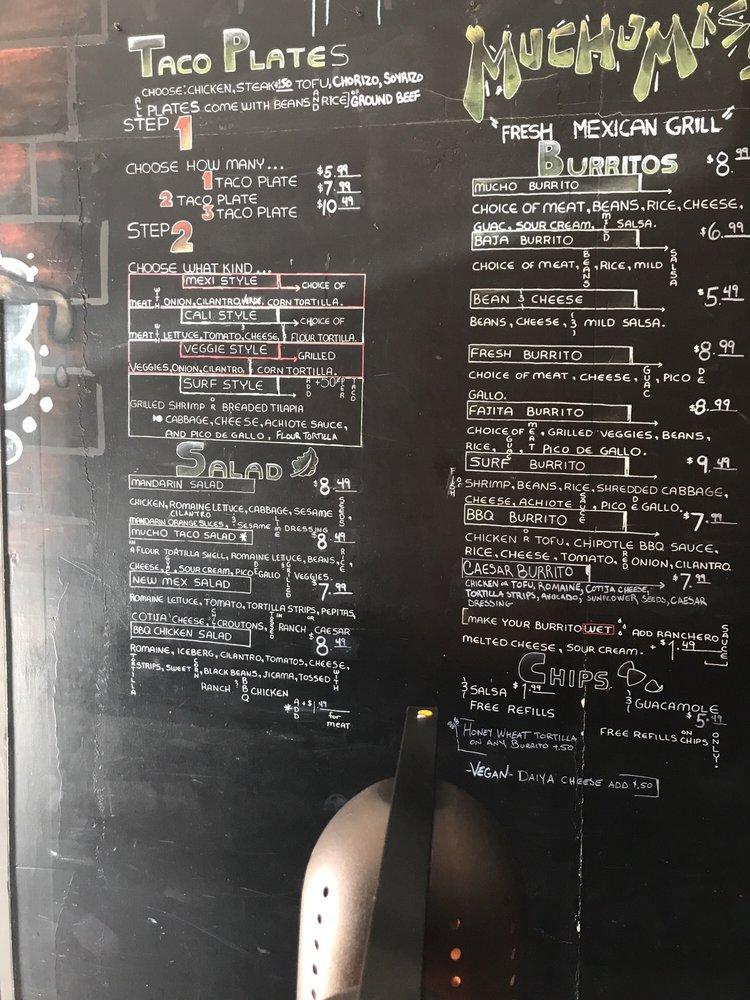 TACO PLATES
CHOOSE: CHICKEN, STEAK +1.50 TOFU, CHORIZO, SOYRIZO
ALL PLATES COME WITH BEANS AND RICE OR GROUND BEEF
STEP 1
CHOOSE HOW MANY...
1 TACO PLATE $5.99
2 TACO PLATE $7.99
3 TACO PLATE $10.49
STEP 2
CHOOSE WHAT KIND...
MEXI STYLE → CHOICE OF
MEAT WITH ONION, CILANTRO, VERDE, CORN TORTILLA.
CALI STYLE → CHOICE OF
MEAT LETTUCE, TOMATO, CHEESE, & FLOUR TORTILLA.
VEGGIE STYLE → GRILLED
VEGGIES, ONION, CILANTRO, & CORN TORTILLA.
SURF STYLE ADD +50¢ PER TACO
GRILLED SHRIMP OR BREADED TILAPIA
CABBAGE, CHEESE, ACHIOTE SAUCE,
AND PICO DE GALLO, FLOUR TORTILLA
SALAD
MANDARIN SALAD $8.49
CHICKEN, ROMAINE LETTUCE, CABBAGE, SESAME SEEDS,
CILANTRO
MANDARIN ORANGE SLICES, & SESAME LIME DRESSING
MUCHO TACO SALAD * $8.49
IN A FLOUR TORTILLA SHELL, ROMAINE LETTUCE, BEANS, RICE,
CHEESE, GUAC, SOUR CREAM, PICO DE GALLO & GRILLED VEGGIES.
NEW MEX SALAD $7.99
ROMAINE LETTUCE, TOMATO, TORTILLA STRIPS, PEPITAS,
COTIJA CHEESE, & CROUTONS, TOSSED IN RANCH OR CAESAR
BBQ CHICKEN SALAD $8.49
ROMAINE, ICEBERG, CILANTRO, TOMATOS, CHEESE,
TORTILLA STRIPS, SWEET CORN, BLACK BEANS, JICAMA, TOSSED WITH
RANCH & BBQ CHICKEN
* ADD +$1.49 for meat
MUCHOMAS
"FRESH MEXICAN GRILL"
BURRITOS
MUCHO BURRITO $8.99
CHOICE OF MEAT, BEANS, RICE, CHEESE,
GUAC, SOUR CREAM, MILD SALSA.
BAJA BURRITO $6.99
CHOICE OF MEAT, BEANS, RICE, MILD SALSA
BEAN & CHEESE $5.49
BEANS, CHEESE, & MILD SALSA.
FRESH BURRITO $8.99
CHOICE OF MEAT, CHEESE, GUAC, PICO DE
GALLO.
FAJITA BURRITO $8.99
CHOICE OF MEAT, GRILLED VEGGIES, BEANS,
RICE, GUAC, & PICO DE GALLO.
SURF BURRITO $9.49
FISH OR SHRIMP, BEANS, RICE, SHREDDED CABBAGE,
CHEESE, ACHIOTE SAUCE, PICO DE GALLO.
BBQ BURRITO $7.99
CHICKEN OR TOFU, CHIPOTLE BBQ SAUCE,
RICE, CHEESE, TOMATO, RED ONION, CILANTRO.
CAESAR BURRITO $7.99
CHICKEN OR TOFU, ROMAINE, COTIJA CHEESE,
TORTILLA STRIPS, AVOCADO, SUNFLOWER SEEDS, CAESAR
DRESSING
MAKE YOUR BURRITO WET ADD RANCHERO SAUCE
MELTED CHEESE, SOUR CREAM. +$1.49
CHIPS
& SALSA $1.99
FREE REFILLS
& GUACAMOLE $5.49
FREE REFILLS ON CHIPS ONLY.
HONEY WHEAT TORTILLA
ON ANY BURRITO +.50
-VEGAN- DAIYA CHEESE ADD $.50